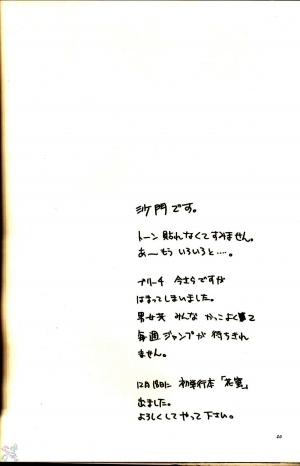 沙門です。
トーン貼れなくてすみません。
あ〜もう いろいろと…。
ブリーチ 今さらですが
はまってしまいました。
男女共 みんな かっこよくて
毎週 ジャンプが 待ちきれ
ません。
12月18日に 初単行本「花蜜」
出ました。
よろしくしてやって下さい。